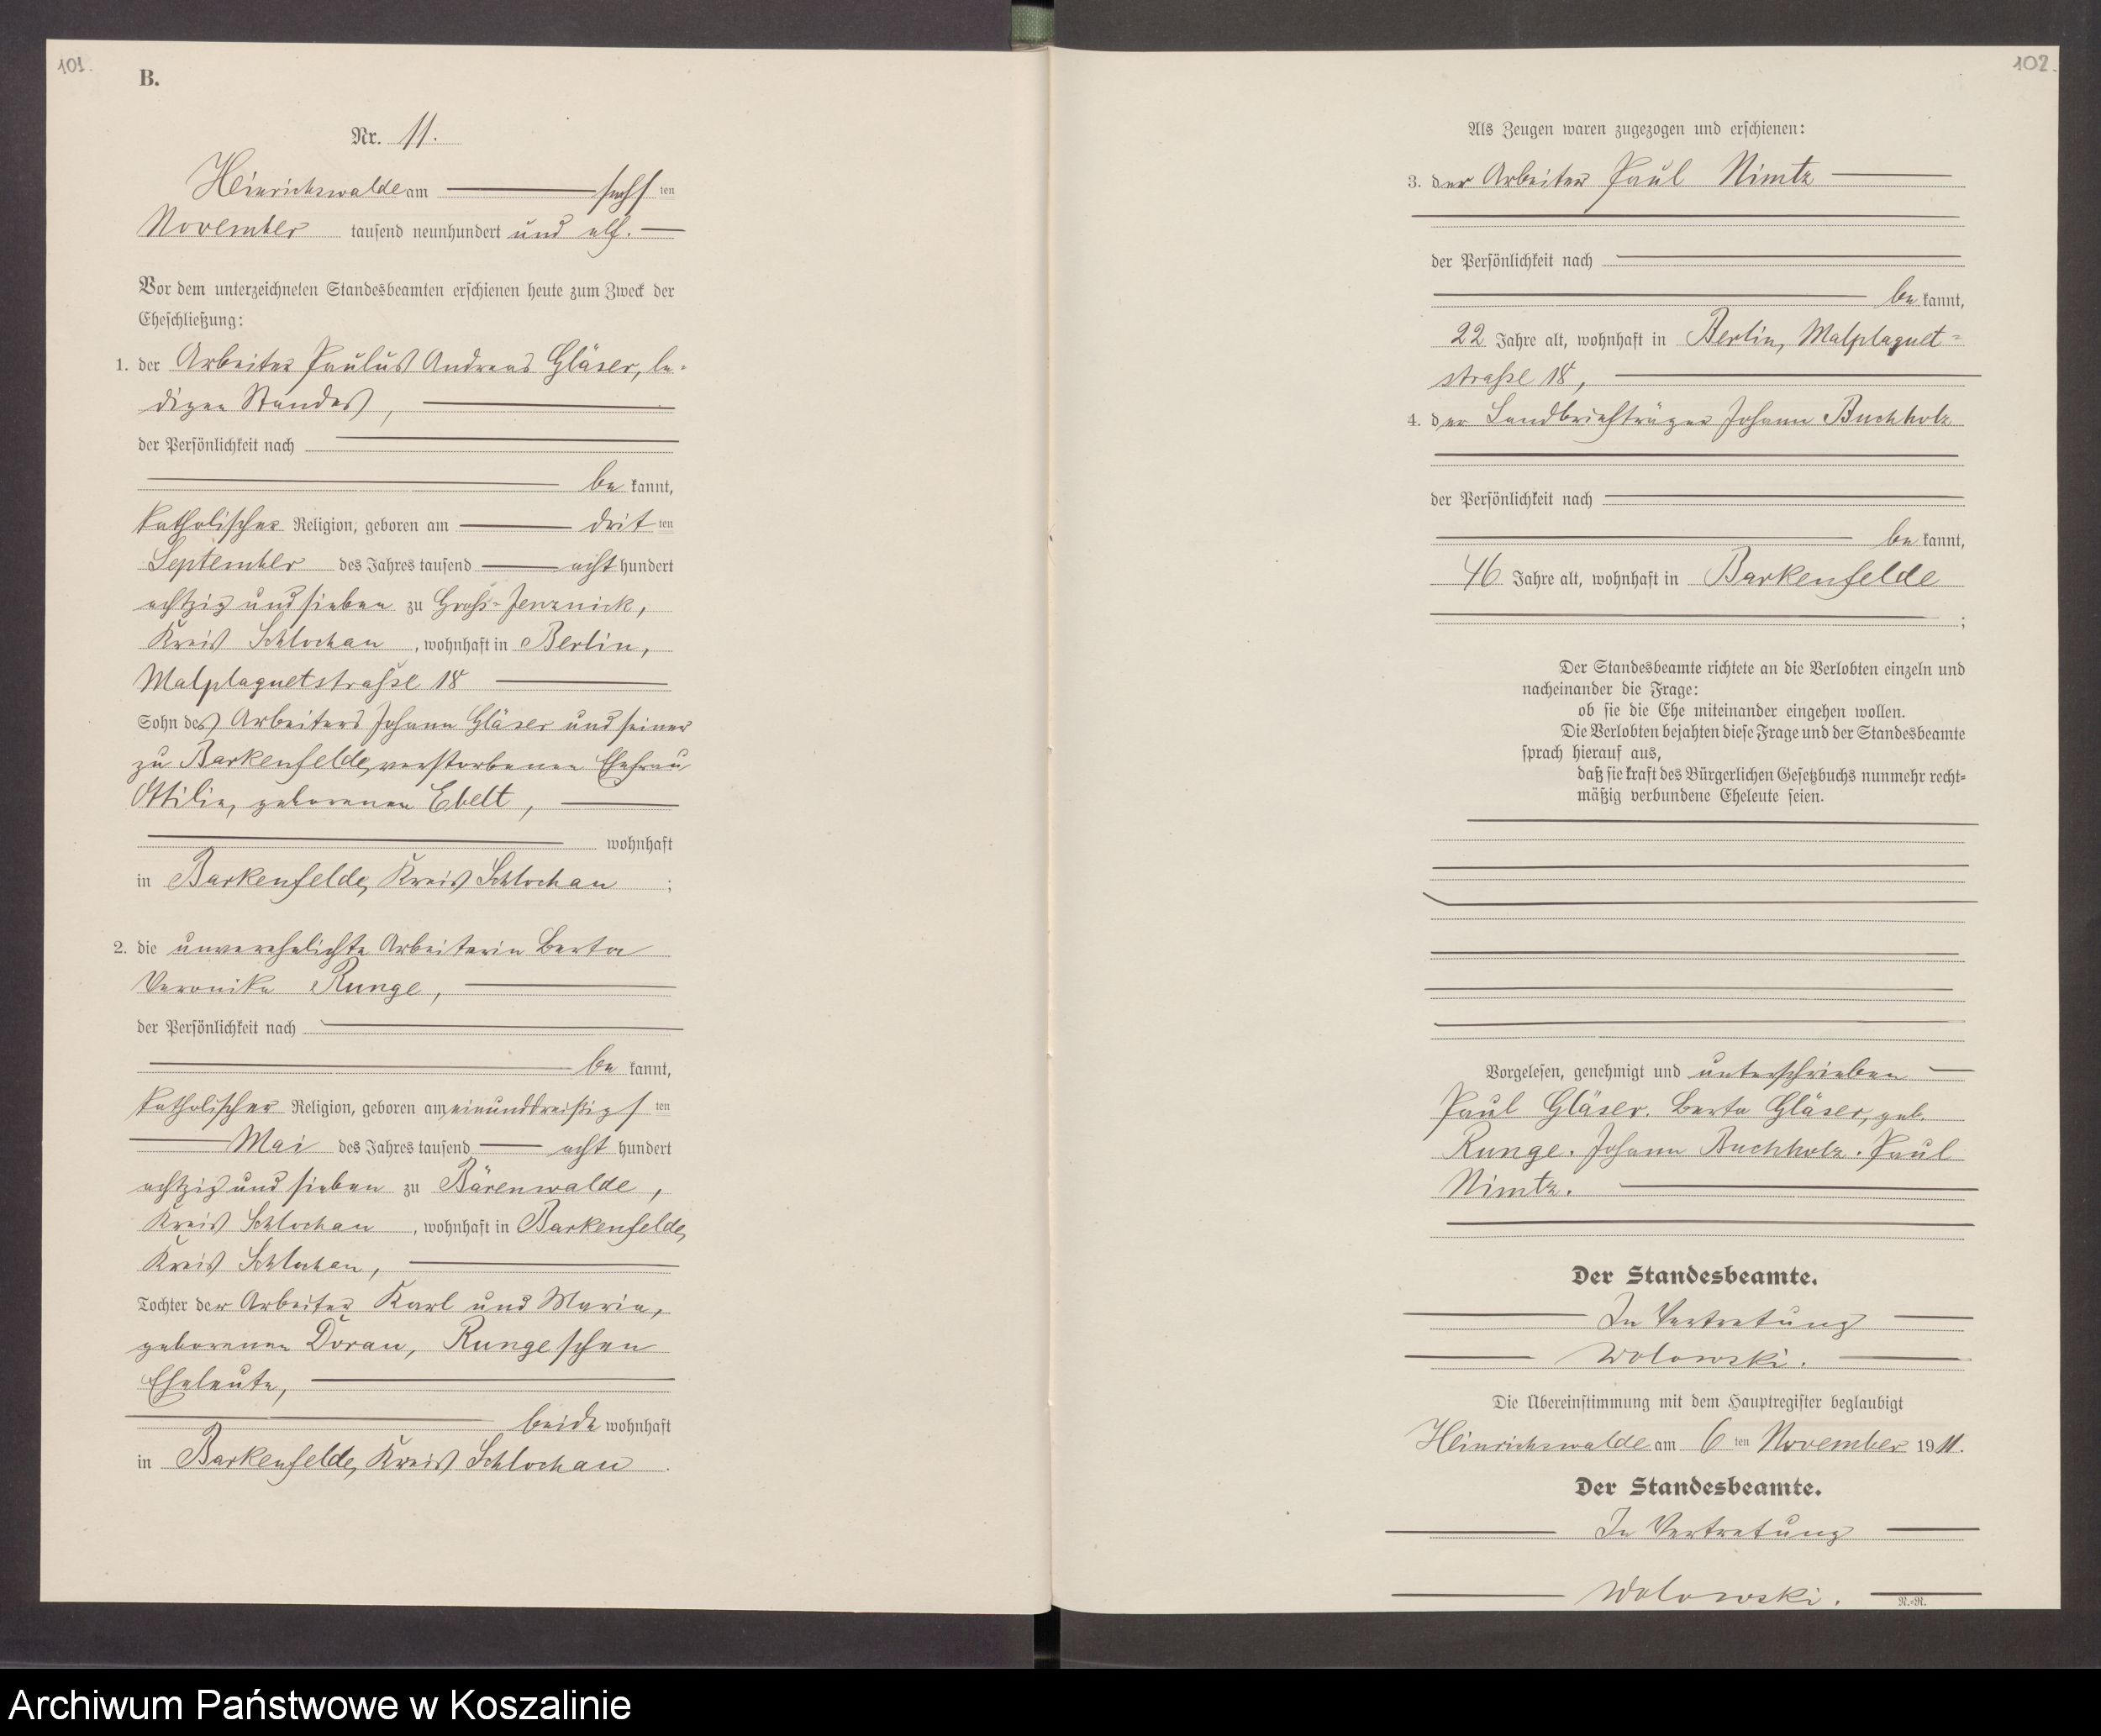 101.
B.
Nr. 11.
Heinrichswalde am sechs ten
November tausend neunhundert und elf.
Vor dem unterzeichneten Standesbeamten erschienen heute zum Zweck der
Eheschließung:
1. der Arbeiter Paulus Andreas Gläser, le-
digen Standes,
der Persönlichkeit nach
be kannt,
katholischer Religion, geboren am drit ten
September des Jahres tausend acht hundert
achtzig und sieben zu Groß-Jenznick,
Kreis Schlochau, wohnhaft in Berlin,
Malplaquetstraße 18
Sohn des Arbeiters Johann Gläser und seiner
zu Barkenfelde verstorbenen Ehefrau
Ottilie, geborenen Ebelt,
wohnhaft
in Barkenfelde, Kreis Schlochau ;
2. die unverehelichte Arbeiterin Berta
Veronika Runge,
der Persönlichkeit nach
be kannt,
katholischer Religion, geboren am einunddreißigs ten
Mai des Jahres tausend acht hundert
achtzig und sieben zu Bärenwalde,
Kreis Schlochau, wohnhaft in Barkenfelde,
Kreis Schlochau,
Tochter der Arbeiter Karl und Maria,
geborenen Doran, Runge'schen
Eheleute,
beide wohnhaft
in Barkenfelde, Kreis Schlochau.
102.
Als Zeugen waren zugezogen und erschienen:
3. der Arbeiter Paul Nimtz
der Persönlichkeit nach
be kannt,
22 Jahre alt, wohnhaft in Berlin, Malplaquet-
straße 18,
4. der Landbriefträger Johann Buchholz
der Persönlichkeit nach
be kannt,
46 Jahre alt, wohnhaft in Barkenfelde
;
Der Standesbeamte richtete an die Verlobten einzeln und
nacheinander die Frage:
ob sie die Ehe miteinander eingehen wollen.
Die Verlobten bejahten diese Frage und der Standesbeamte
sprach hierauf aus,
daß sie kraft des Bürgerlichen Gesetzbuchs nunmehr recht-
mäßig verbundene Eheleute seien.
Vorgelesen, genehmigt und unterschrieben
Paul Gläser. Berta Gläser, geb.
Runge. Johann Buchholz. Paul
Nimtz.
Der Standesbeamte.
In Vertretung
Wolowski.
Die Übereinstimmung mit dem Hauptregister beglaubigt
Heinrichswalde am 6 ten November 1911.
Der Standesbeamte.
In Vertretung
Wolowski.
N.-R.
Archiwum Państwowe w Koszalinie